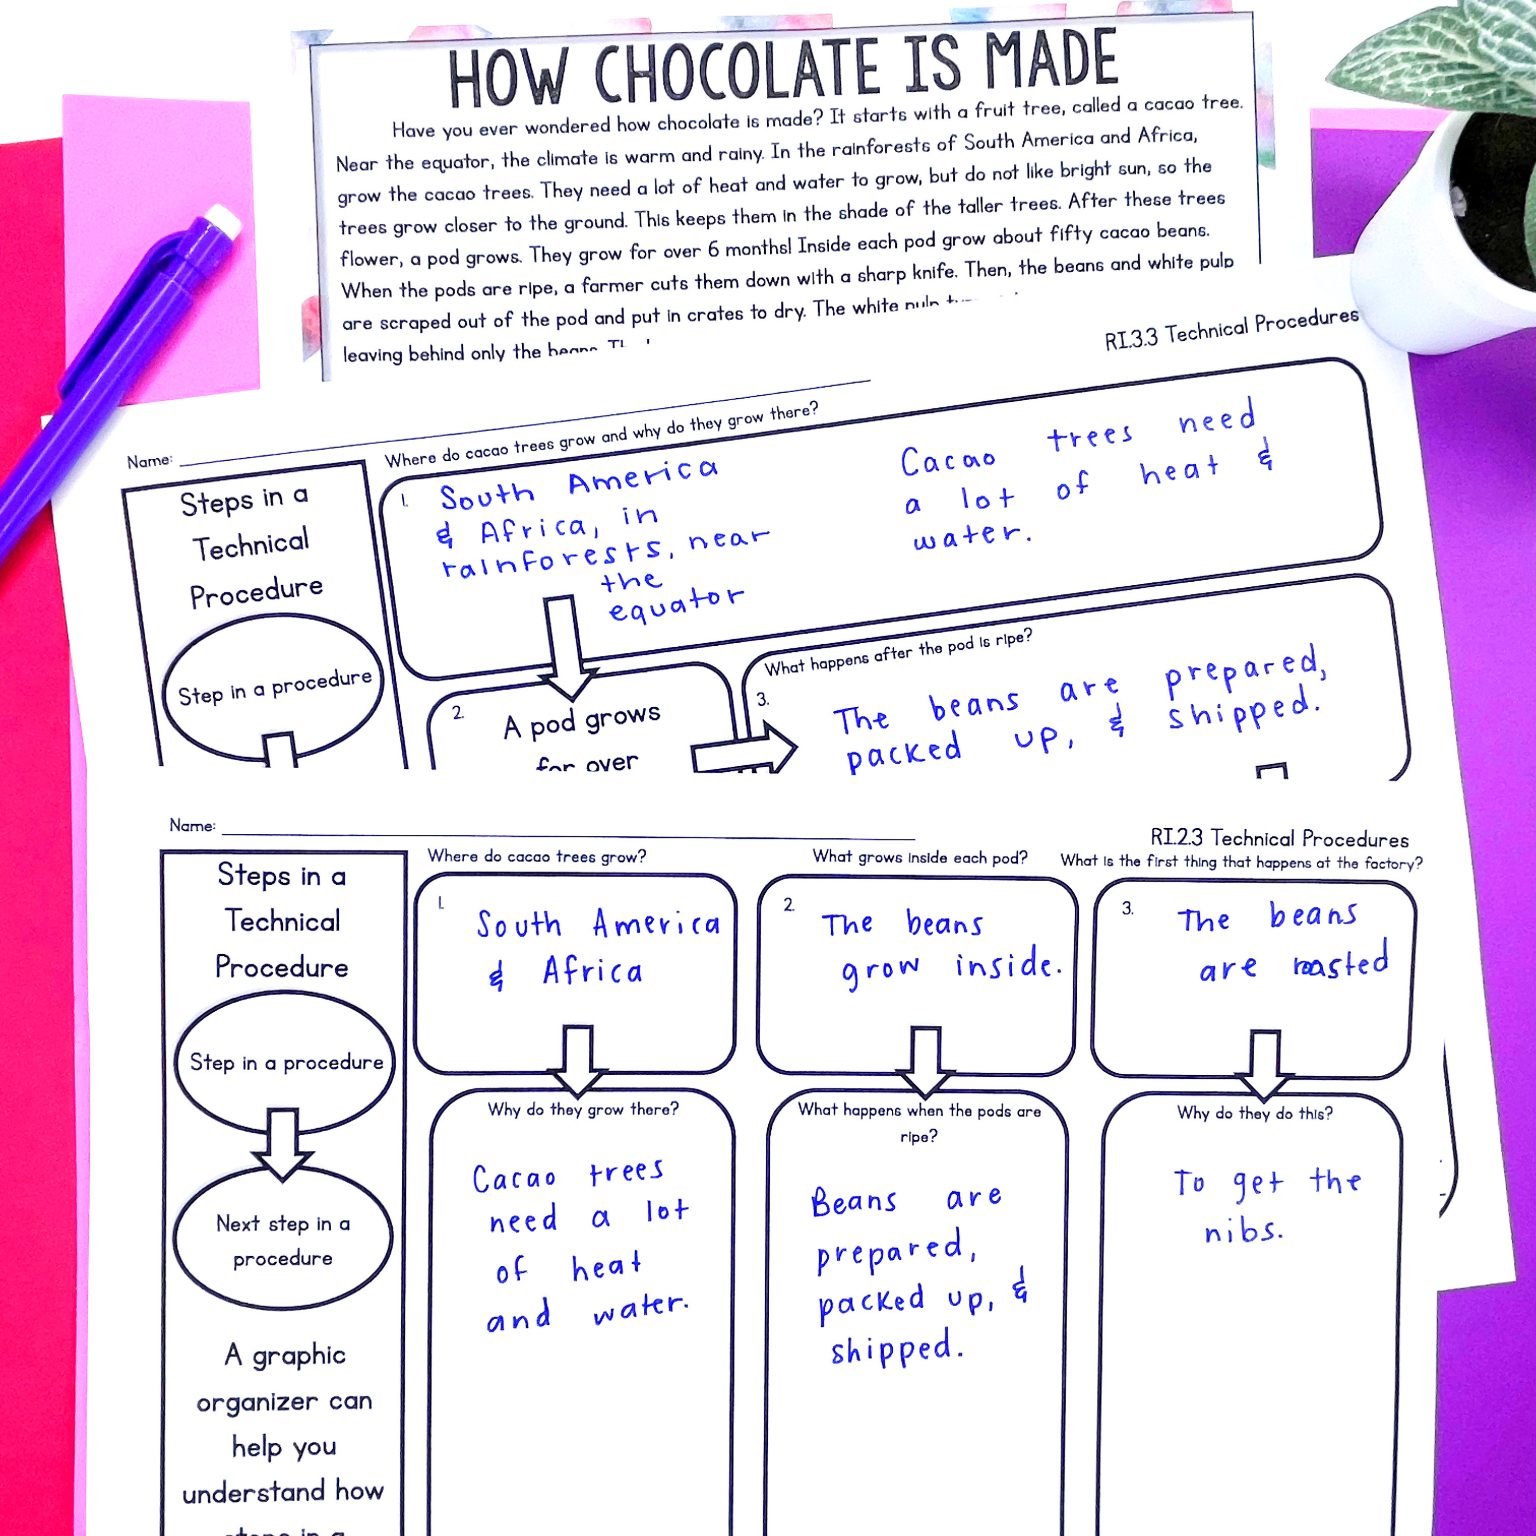 HOW CHOCOLATE IS MADE
Have you ever wondered how chocolate is made? It starts with a fruit tree, called a cacao tree.
Near the equator, the climate is warm and rainy. In the rainforests of South America and Africa,
grow the cacao trees. They need a lot of heat and water to grow, but do not like bright sun, so the
trees grow closer to the ground. This keeps them in the shade of the taller trees. After these trees
flower, a pod grows. They grow for over 6 months! Inside each pod grow about fifty cacao beans.
When the pods are ripe, a farmer cuts them down with a sharp knife. Then, the beans and white pulp
are scraped out of the pod and put in crates to dry. The white pulp
leaving behind only the beans.
RI.3.3 Technical Procedures
Name:
Steps in a
Technical
Procedure
Step in a procedure
Where do cacao trees grow and why do they grow there?
1.
South America
& Africa, in
rainforests, near
the
equator
Cacao trees need
a lot of heat &
water.
2.
A pod grows
for over
What happens after the pod is ripe?
3.
The beans are prepared,
packed up, & shipped.
Name:
RI.2.3 Technical Procedures
Steps in a
Technical
Procedure
Step in a procedure
Next step in a
procedure
A graphic
organizer can
help you
understand how
steps in a
Where do cacao trees grow?
1.
South America
& Africa
Why do they grow there?
Cacao trees
need a lot
of heat
and water.
What grows inside each pod?
2.
The beans
grow inside.
What happens when the pods are
ripe?
Beans are
prepared,
packed up, &
shipped.
What is the first thing that happens at the factory?
3.
The beans
are roasted
Why do they do this?
To get the
nibs.